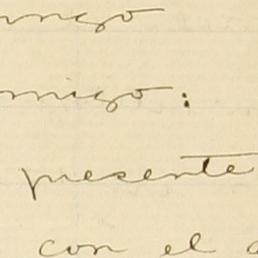 migo:
presente
con el